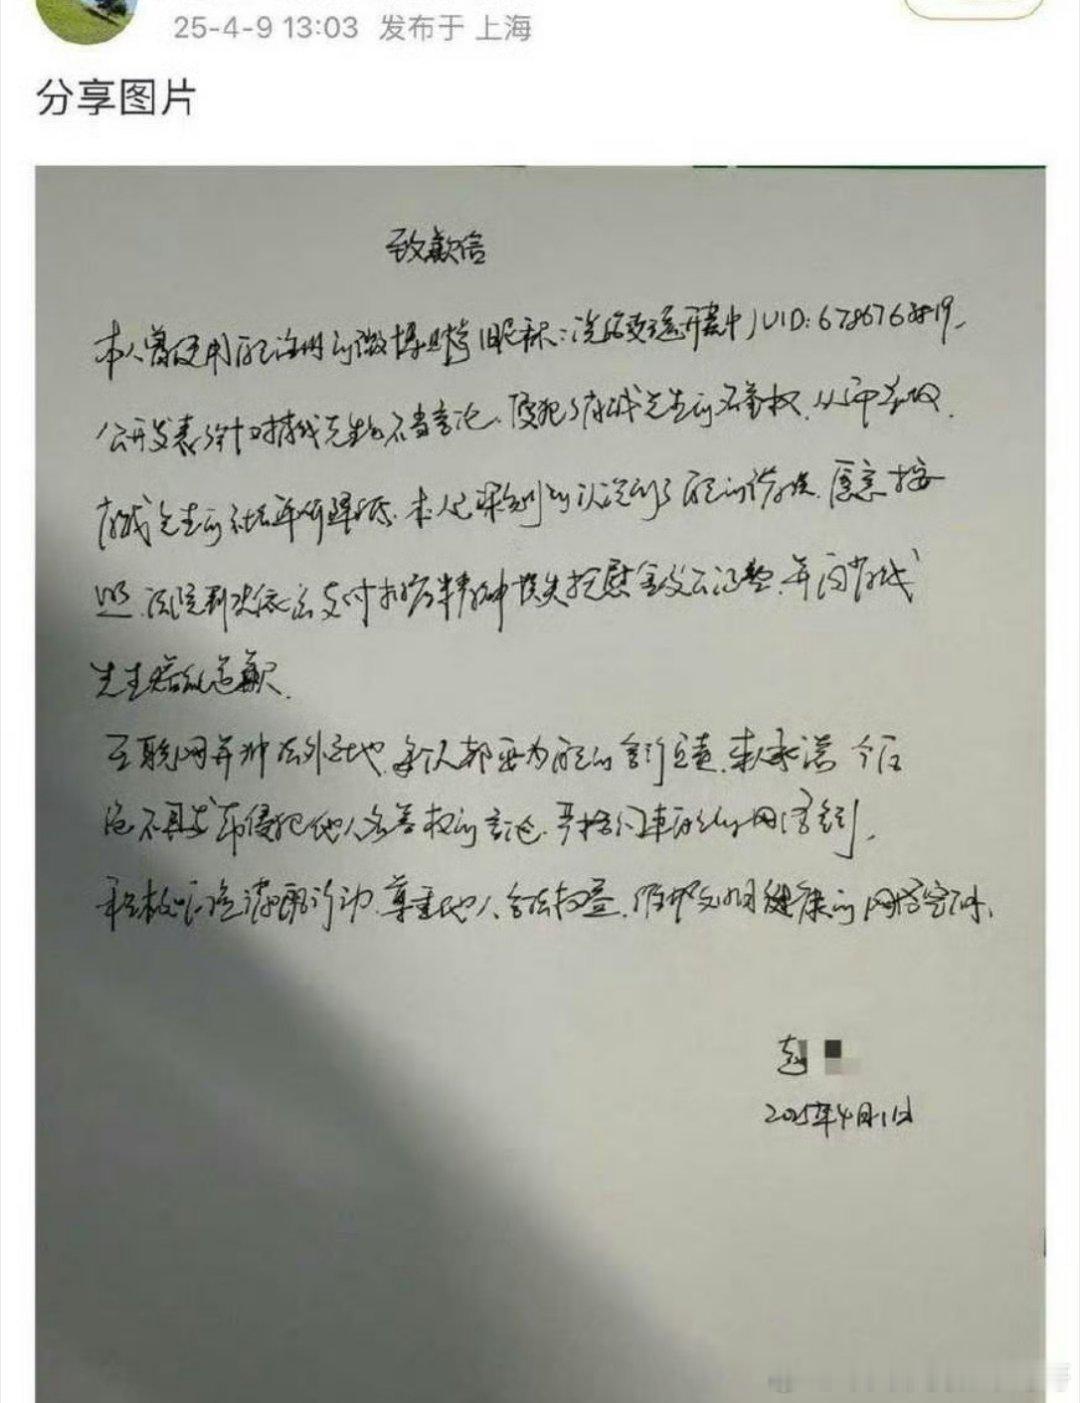 25-4-9 13:03 发布于 上海
分享图片
致歉信
本人曾使用自己注册的微博账号(昵称: UID:
公开发表了针对 先生的不当言论,侵犯了 先生的名誉权,从而导致
先生的社会评价降低,本人已深刻的认识到了自己的错误,愿意按
照法院判决依法支付 精神损失抚慰金及公证费,并向
先生赔礼道歉.
互联网并非法外之地,每个人都要为自己的言行负责,本人承诺今后
绝不再发布侵犯他人名誉权的言论,严格 自己的网络言行,
积极 尊重他人合法权益,维护文明健康的网络空间.
赵
2025年4月1日